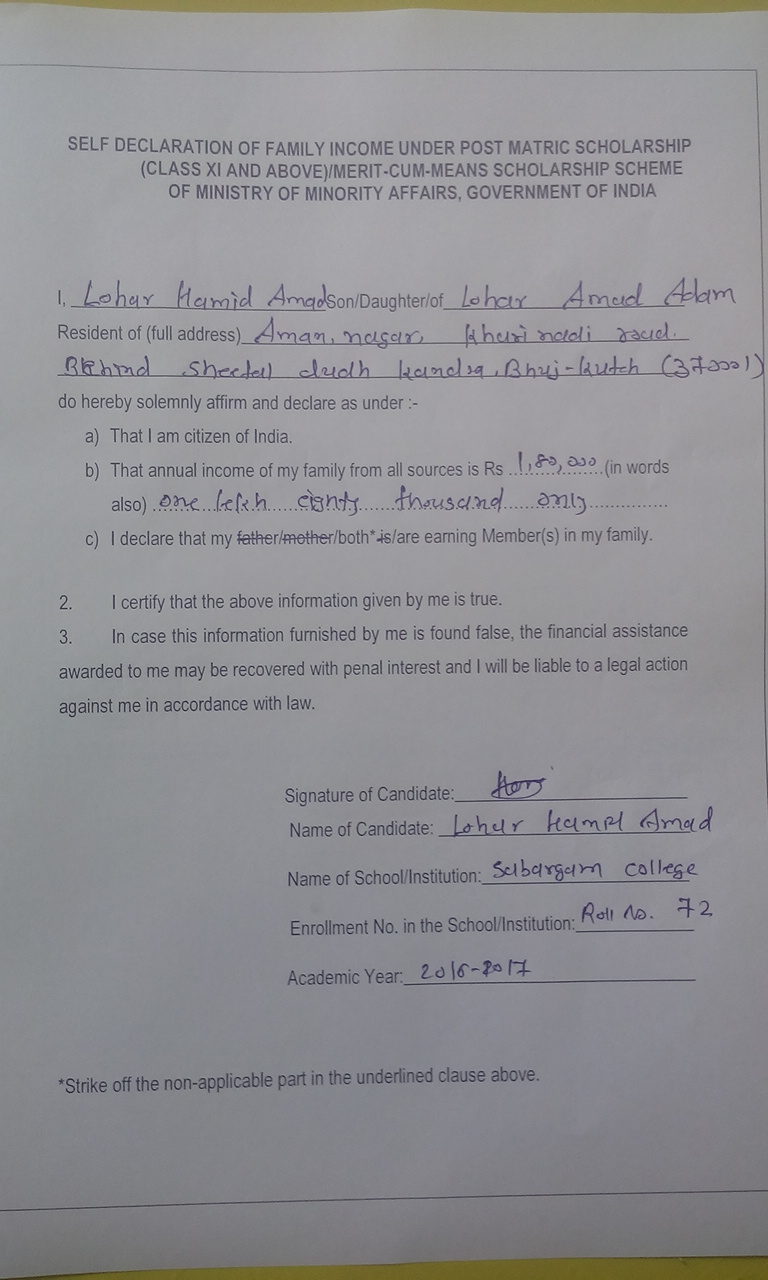 SELF DECLARATION OF FAMILY INCOME UNDER POST MATRIC SCHOLARSHIP
(CLASS XI AND ABOVE)/MERIT-CUM-MEANS SCHOLARSHIP SCHEME
OF MINISTRY OF MINORITY AFFAIRS, GOVERNMENT OF INDIA
I, Lohar Hamid Amad Son/Daughter/of Lohar Amad Adam
Resident of (full address) Aman, nagar, khari nadi road.
Behind sheetal dudh kandra, Bhuj-kutch (370001)
do hereby solemnly affirm and declare as under :-
a) That I am citizen of India.
b) That annual income of my family from all sources is Rs ..1,80,000..(in words
also) .one lakh eighty thousand only..............
c) I declare that my father/mother/both* is/are earning Member(s) in my family.
2. I certify that the above information given by me is true.
3. In case this information furnished by me is found false, the financial assistance
awarded to me may be recovered with penal interest and I will be liable to a legal action
against me in accordance with law.
Signature of Candidate:
Name of Candidate: Lohar Hamid Amad
Name of School/Institution: Sabargam college
Enrollment No. in the School/Institution: Roll No. 72
Academic Year: 2016-2017
*Strike off the non-applicable part in the underlined clause above.